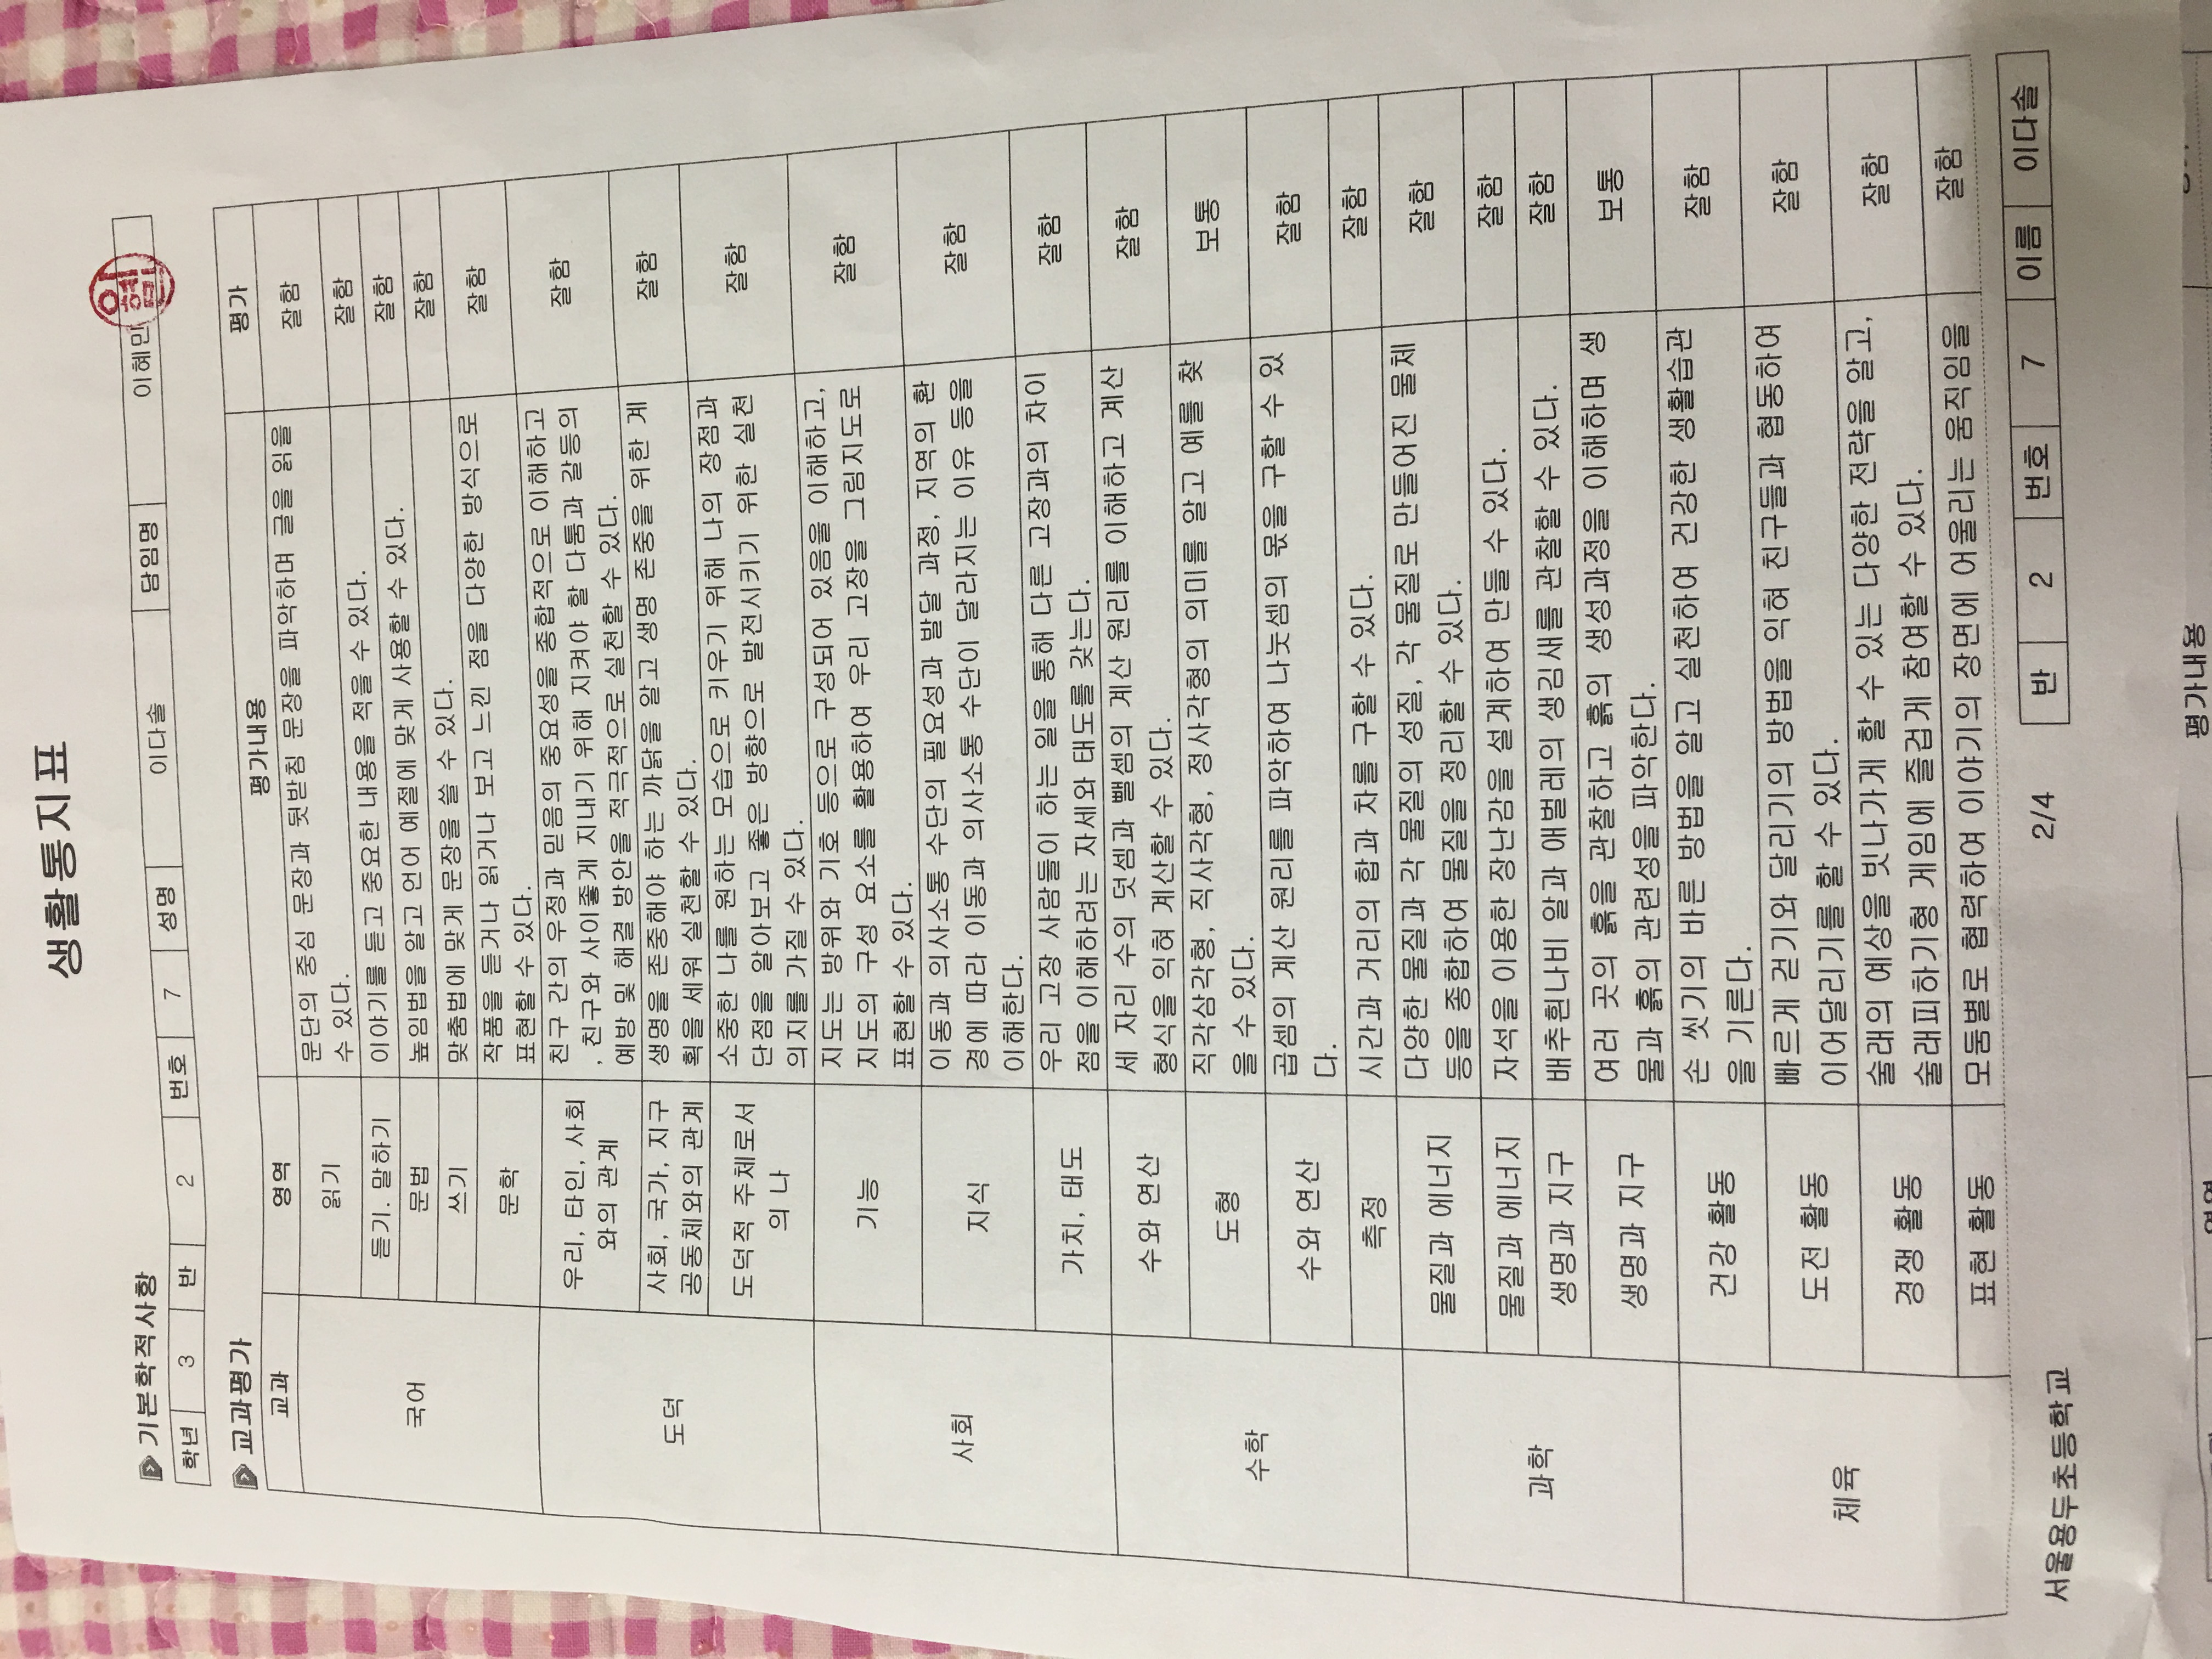 생활통지표
기본학적사항
학년 3 반 2 번호 7 성명 이다솔 담임명 이혜민
교과평가
교과 영역 평가내용 평가
국어
읽기
문단의 중심 문장과 뒷받침 문장을 파악하며 글을 읽을
수 있다.
잘함
듣기. 말하기 이야기를 듣고 중요한 내용을 적을 수 있다. 잘함
문법 높임법을 알고 언어 예절에 맞게 사용할 수 있다. 잘함
쓰기 맞춤법에 맞게 문장을 쓸 수 있다. 잘함
문학
작품을 듣거나 읽거나 보고 느낀 점을 다양한 방식으로
표현할 수 있다.
잘함
도덕
우리, 타인, 사회
와의 관계
친구 간의 우정과 믿음의 중요성을 종합적으로 이해하고
, 친구와 사이좋게 지내기 위해 지켜야 할 다툼과 갈등의
예방 및 해결 방안을 적극적으로 실천할 수 있다.
잘함
사회, 국가, 지구
공동체와의 관계
생명을 존중해야 하는 까닭을 알고 생명 존중을 위한 계
획을 세워 실천할 수 있다.
잘함
도덕적 주체로서
의 나
소중한 나를 원하는 모습으로 키우기 위해 나의 장점과
단점을 알아보고 좋은 방향으로 발전시키기 위한 실천
의지를 가질 수 있다.
잘함
사회
기능
지도는 방위와 기호 등으로 구성되어 있음을 이해하고,
지도의 구성 요소를 활용하여 우리 고장을 그림지도로
표현할 수 있다.
잘함
지식
이동과 의사소통 수단의 필요성과 발달 과정, 지역의 환
경에 따라 이동과 의사소통 수단이 달라지는 이유 등을
이해한다.
잘함
가치, 태도
우리 고장 사람들이 하는 일을 통해 다른 고장과의 차이
점을 이해하려는 자세와 태도를 갖는다.
잘함
수학
수와 연산
세 자리 수의 덧셈과 뺄셈의 계산 원리를 이해하고 계산
형식을 익혀 계산할 수 있다.
잘함
도형
직각삼각형, 직사각형, 정사각형의 의미를 알고 예를 찾
을 수 있다.
보통
수와 연산
곱셈의 계산 원리를 파악하여 나눗셈의 몫을 구할 수 있
다.
잘함
측정 시간과 거리의 합과 차를 구할 수 있다. 잘함
과학
물질과 에너지
다양한 물질과 각 물질의 성질, 각 물질로 만들어진 물체
등을 종합하여 물질을 정리할 수 있다.
잘함
물질과 에너지 자석을 이용한 장난감을 설계하여 만들 수 있다. 잘함
생명과 지구 배추흰나비 알과 애벌레의 생김새를 관찰할 수 있다. 잘함
생명과 지구
여러 곳의 흙을 관찰하고 흙의 생성과정을 이해하며 생
물과 흙의 관련성을 파악한다.
보통
체육
건강 활동
손 씻기의 바른 방법을 알고 실천하여 건강한 생활습관
을 기른다.
잘함
도전 활동
빠르게 걷기와 달리기의 방법을 익혀 친구들과 협동하여
이어달리기를 할 수 있다.
잘함
경쟁 활동
술래의 예상을 빗나가게 할 수 있는 다양한 전략을 알고,
술래피하기형 게임에 즐겁게 참여할 수 있다.
잘함
표현 활동 모둠별로 협력하여 이야기의 장면에 어울리는 움직임을 잘함
서울용두초등학교 2/4 반 2 번호 7 이름 이다솔
평가내용